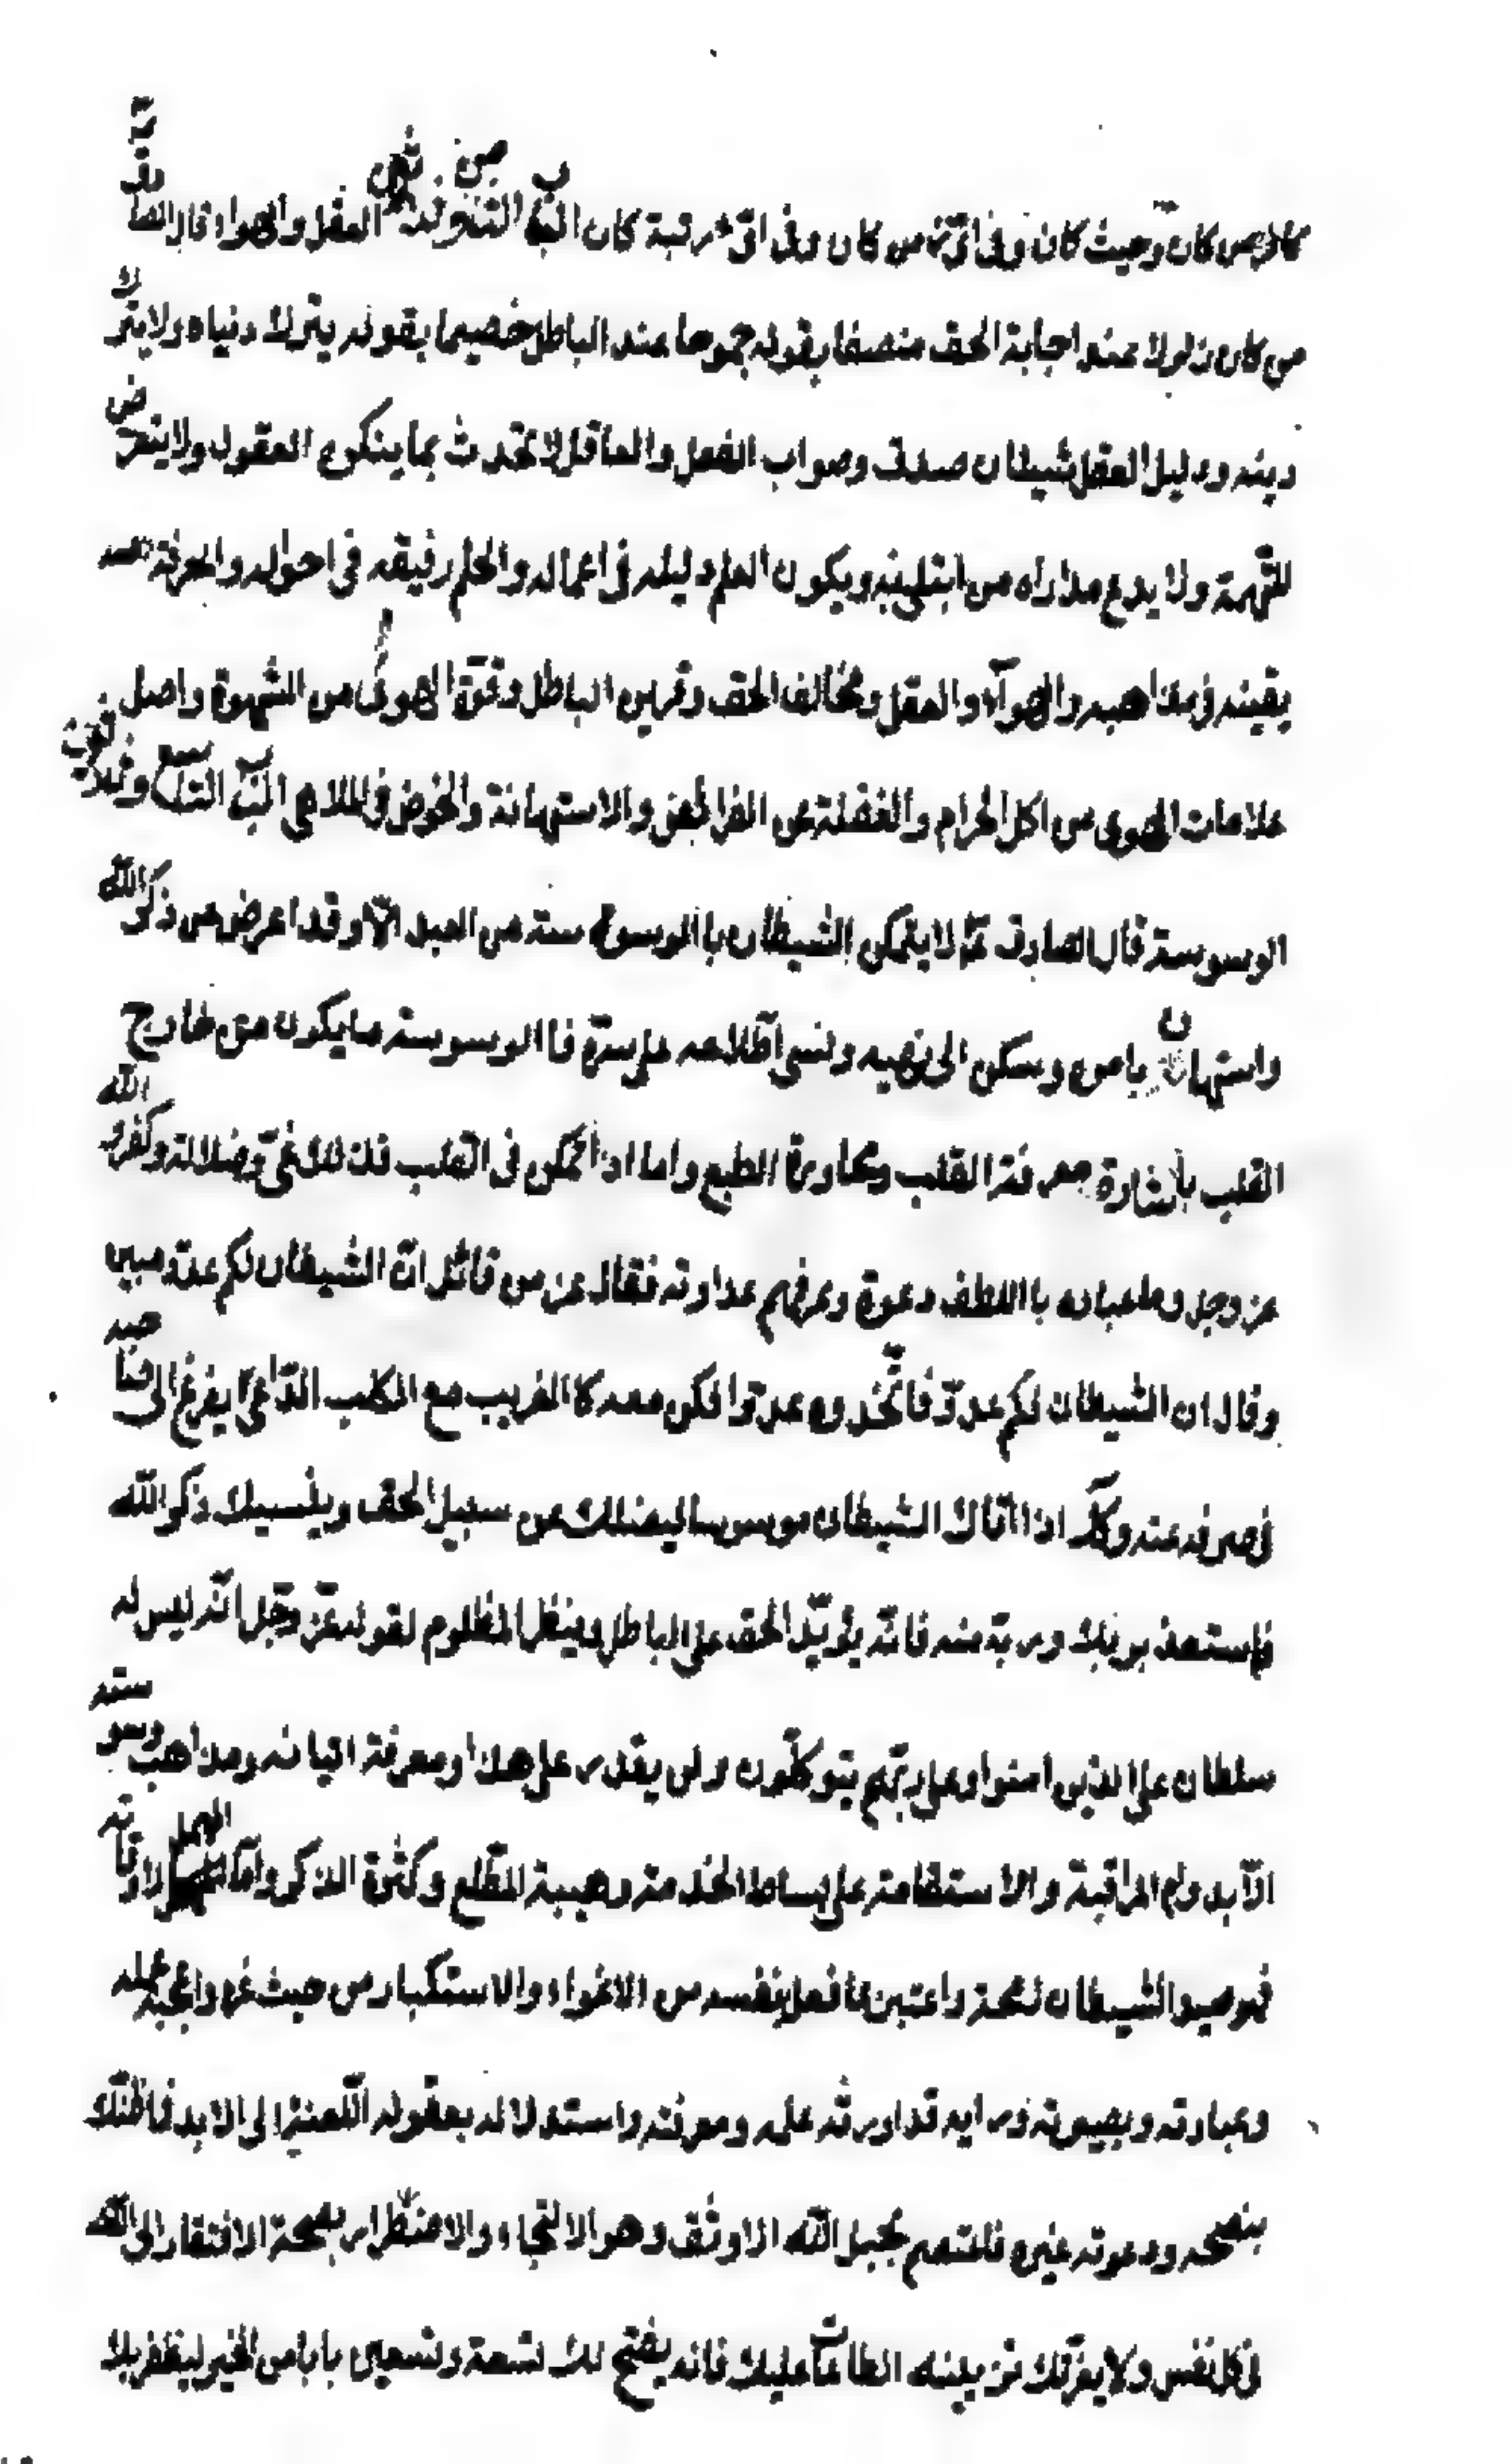 كل من كان وحيث كان وفى اىّ زمن كان وفى اىّ مرتبة كان الباب العقل والهوا قال الصادق
من كان ذلولا عند اجابة الحق منصفا بقوله جموحا عند الباطل خصيما بقوله يترك دنياه ولا يترك
دينه ودليل العقل شيئان صدق وصواب الفعل والعاقل لا يتحدث بما ينكره العقول ولا يتعرض
للتّهمة ولا يدع مداراه من ابتلى به ويكون العلم دليله فى اعماله والحلم رفيقه فى احواله والمعرفة
يقينه فى مذاهبه والهوآء والعقل ومخالف الحق وقرين الباطل وقوّة الهوى من الشهوة واصل
علامات الهوى من اكل الحرام والغفلة عن الفرائض والاستهانة والخوض فى الملاهى الباب التاسع وثلاثون
الوسوسة قال الصادق لا يتمكن الشيطان باالوسوسة من العبد الّا وقد اعرض عن ذكر الله
واستهان بامره وسكن الى نهيه ونسى اطّلاعه على سرّه فاالوسوسة ما يكون من خارج
القلب باشارة معرفة القلب ومجاورة الطبع واما اذا تمكن فى القلب فذلك غىّ وضلالة وكفر الله
عز وجل وعا عباده باللطف دعوة وعرفهم عداوته فقال عز من قائل انّ الشيطان لكم عدو مبين
وقال ان الشيطان لكم عدوّ فاتّخذوه عدوّا فكن معه كاالغريب مع الكلب الرّاعى يفزع الى صاحبه
فى صرفه عنه وكك اذا اتاك الشيطان موسوسا ليضلك عن سبيل الحق وينسيك ذكر الله
فاستعذ بربك وربه منه فانّه يؤيّد الحق على الباطل وينصر المظلوم لقوله عزّ وجّل انّه ليس له
سلطان على الذين امنوا وعلى ربّهم يتوكّلون ولن يقدر على هذا ومعرفة اتيانه ومذاهب وسوسته
الّا بدوام المراقبة والاستقامة على بساط الخدمة وهيبة المطّلع وكثرة الذكر وامّا المهمل لاوقاته
فهو صيد الشيطان لامحة واعتبر بما فعل بنفسه من الاغواء والاستكبار من حيث غره واعجبه عمله
وعبادته وبصيرته ورايه قد اورثه علمه ومعرفته واستدلاله بعقوله اللّعنة الى الابد فما ظنّك
بنصحه ودعوته غيره فاعتصم بحبل الله الاوثق وهو الالتجاء والاضطرار بصحة الافتقار الى الله
فى كل نفس ولا يغرّنك تزيينه الطاعات عليك فانه يفتح لك تسعة وتسعين بابا من الخير ليظفر بك